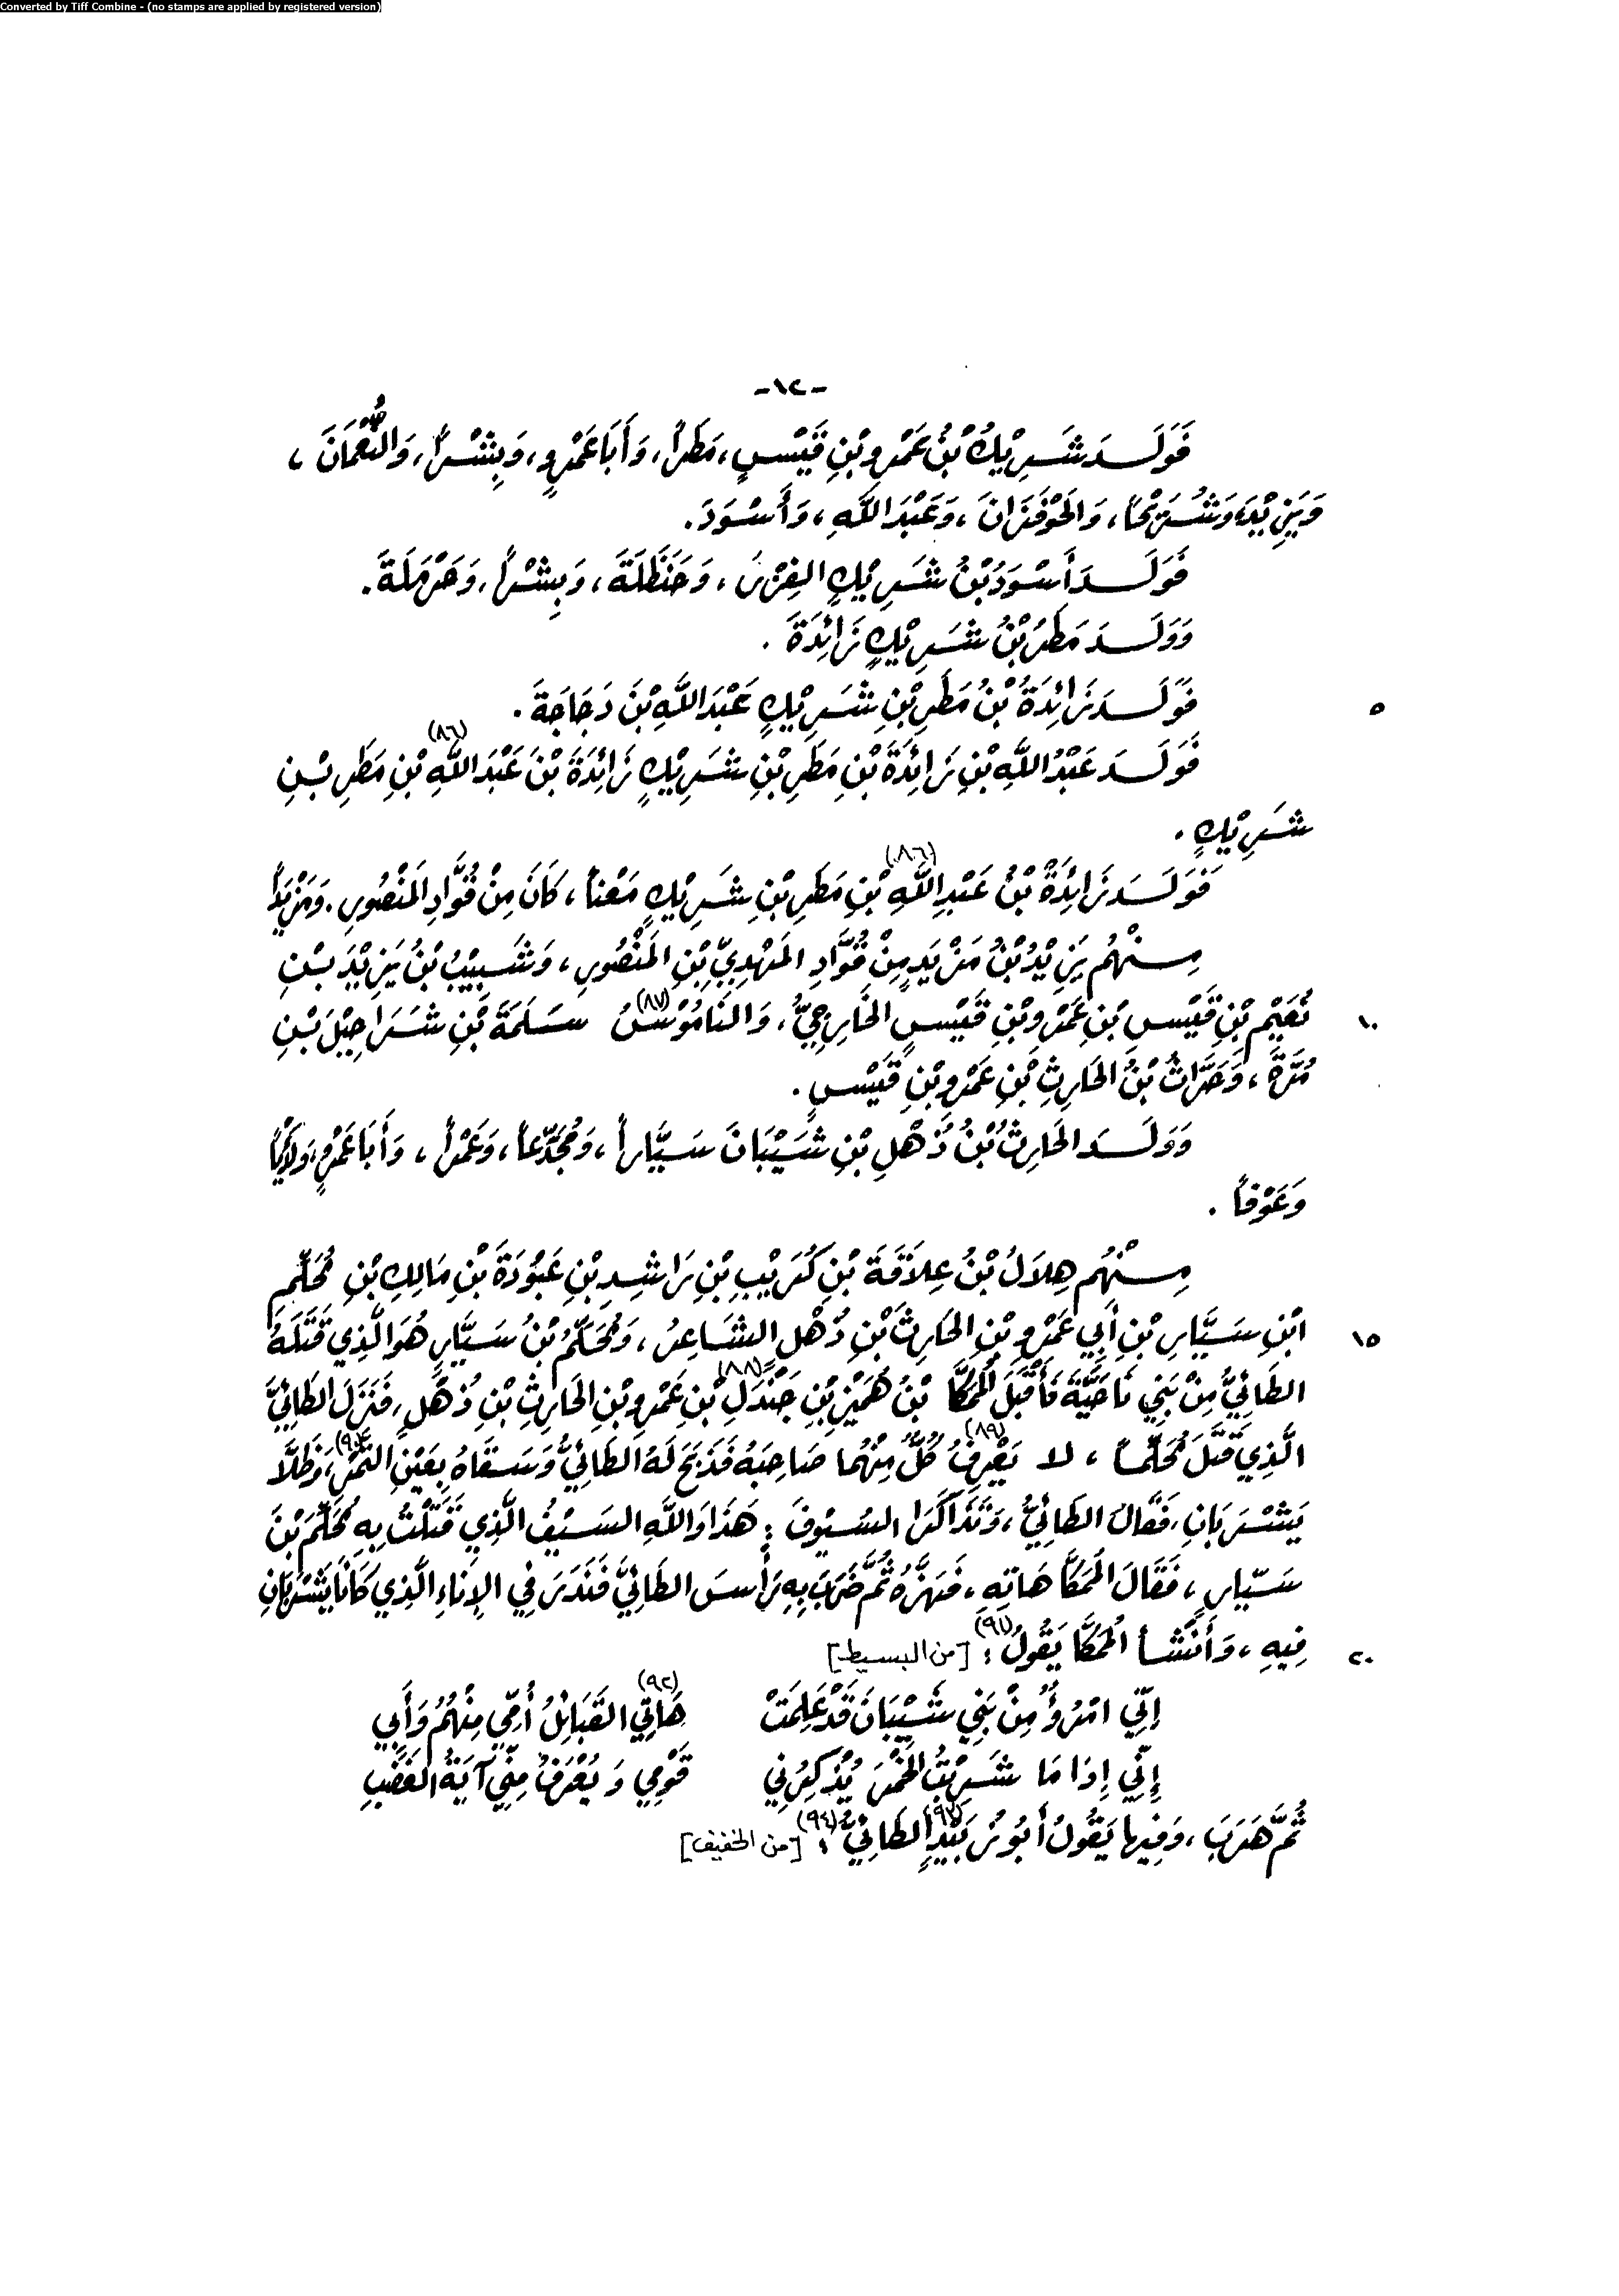 Converted by Tiff Combine - (no stamps are applied by registered version)
-١٢-
فَوَلَدَ شَرِيْكُ بْنُ عَمْرِو بْنِ قَيْسٍ، مَطَراً، وَأَبَا عَمْرٍو، وَبِشْراً، وَالنُّعْمَانَ،
وَيَزِيْدَ، وَشُرَيْحاً، وَالحَوْفَزَانَ، وَعَبْدَ اللَّهِ، وَأَسْوَدَ.
فَوَلَدَ أَسْوَدُ بْنُ شَرِيْكٍ الفِزْرَ، وَحَنْظَلَةَ، وَبِشْراً، وَحَرْمَلَةَ.
وَوَلَدَ مَطَرُ بْنُ شَرِيْكٍ زَائِدَةَ.
٥ فَوَلَدَ زَائِدَةُ بْنُ مَطَرِ بْنِ شَرِيْكٍ عَبْدَ اللَّهِ بْنَ دَجَاجَةَ.
فَوَلَدَ عَبْدُ اللَّهِ بْنِ زَائِدَةَ بْنِ مَطَرِ بْنِ شَرِيْكٍ زَائِدَةَ بْنَ عَبْدَ اللَّهِ (٨٦) بْنِ مَطَرِ بْنِ
شَرِيْكٍ.
فَوَلَدَ زَائِدَةُ بْنُ عَبْدِ اللَّهِ (٨٦) بْنِ مَطَرِ بْنِ شَرِيْكٍ مَعْناً، كَانَ مِنْ قُوَّادِ المَنْصُورِ. وَمَزْيَداً
مِنْهُم يَزِيْدُ بْنُ مَزْيَدٍ مِنْ قُوَّادِ المَهْدِيِّ بْنِ المَنْصُورِ، وَشَبِيْبُ بْنُ يَزِيْدَ بْنِ
١٠ نُعَيْمِ بْنِ قَيْسِ بْنِ عَمْرِو بْنِ قَيْسٍ الخَارِجِيُّ، وَالنَامُوْسُ (٨٧) سَلَمَةَ بْنِ شَرَاحِيْلَ بْنِ
مُرَّةَ، وَحَرَّاثُ بْنُ الحَارِثِ بْنِ عَمْرِو بْنِ قَيْسٍ.
وَوَلَدَ الحَارِثُ بْنُ ذُهْلِ بْنِ شَيْبَانَ سَيَّاراً، وَمُجَدِّعاً، وَعَمْراً، وَأَبَا عَمْرٍو، وَلَأْياً
وَعَوْفاً.
مِنْهُم هِلَالُ بْنُ عِلَاقَةَ بْنِ كُرَيْبِ بْنِ رَاشِدِ بْنِ عَبُوْدَةَ بْنِ مَالِكِ بْنِ مُحَلِّمِ
١٥ ابْنِ سَيَّارِ بْنِ أَبِي عَمْرِو بْنِ الحَارِثِ بْنِ ذُهْلٍ الشَاعِرُ، وَمُحَلِّمُ بْنُ سَيَّارٍ هُوَ الَّذِي قَتَلَهُ
الطَائِيُّ مِنْ بَنِي نَاحِيَّةَ فَأَقْبَلَ المُكَّا بْنُ هُمَيْزِ بْنِ جَنْدَلِ (٨٨) بْنِ عَمْرِو بْنِ الحَارِثِ بْنِ ذُهْلٍ، فَنَزَلَ الطَائِيَّ
الَّذِي قَتَلَ مُحَلِّماً، لا يَعْرِفُ (٨٩) كُلٌّ مِنْهُما صَاحِبَهُ فَذَبَحَ لَهُ الطَائِيُّ وَسَقَاهُ بِعَيْنِ التَمْرِ (٩٠)، وَظَلَّا
يَشْرَبَانِ، فَقَالَ الطَائِيُّ، وَتَذَاكَرَا السُيُوفَ: هَذَا وَاللَّهِ السَيْفُ الَّذِي قَتَلْتُ بِهِ مُحَلِّمَ بْنَ
سَيّارٍ، فَقَالَ المُكَّا هَاتِهِ، فَهَزَّهُ ثُمَّ ضَرَبَ بِهِ رَأْسَ الطَائِيَّ فَنَدَرَ فِي الإِنَاءِ الَّذِي كَانَا يَشْرَبَانِ
٢٠ فِيهِ، وَأَنْشَأ المُكَّا يَقُولُ (٩١): [من البسيط]
إِنِّي امْرُؤٌ مِنْ بَنِي شَيْبَانَ قَدْ عَلِمَتْ هَاتِي القَبَائِلُ (٩٢) أُمِّي مِنْهُمُ وَأَبِي
إِنِّي إِذَا مَا شَرِبْتُ الخَمْرَ يُذْكِرُنِي قَوْمِي وَيُعْرَفُ مِنِّي آيَةُ الغَضَبِ
ثُمَّ هَرَبَ، وَفِيها يَقُولُ أَبُو زُبَيْدٍ (٩٣) الطَائِيُّ (٩٤): [من الخفيف]